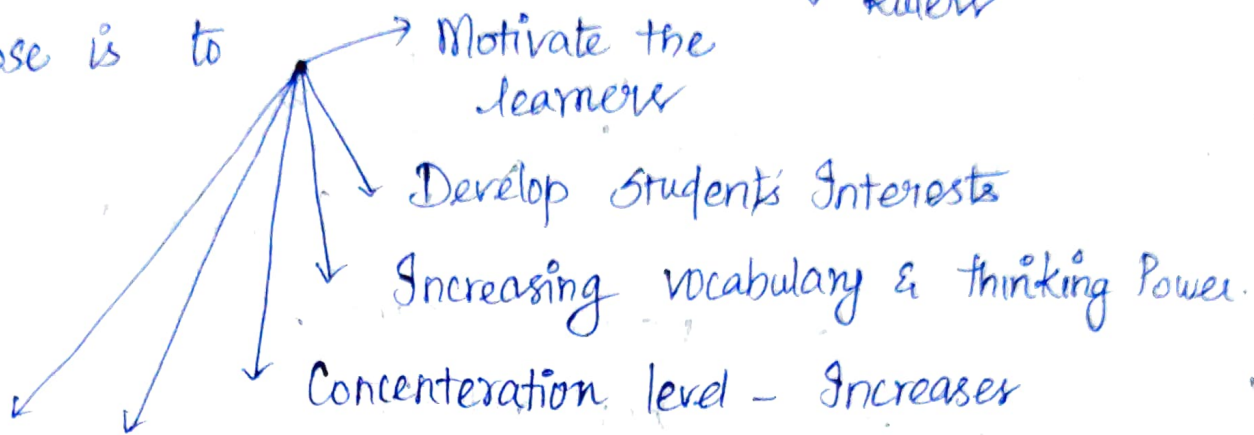 is to Motivate the
learners
Develop Students Interests
Increasing vocabulary & thinking Power.
Concenteration level - Increases